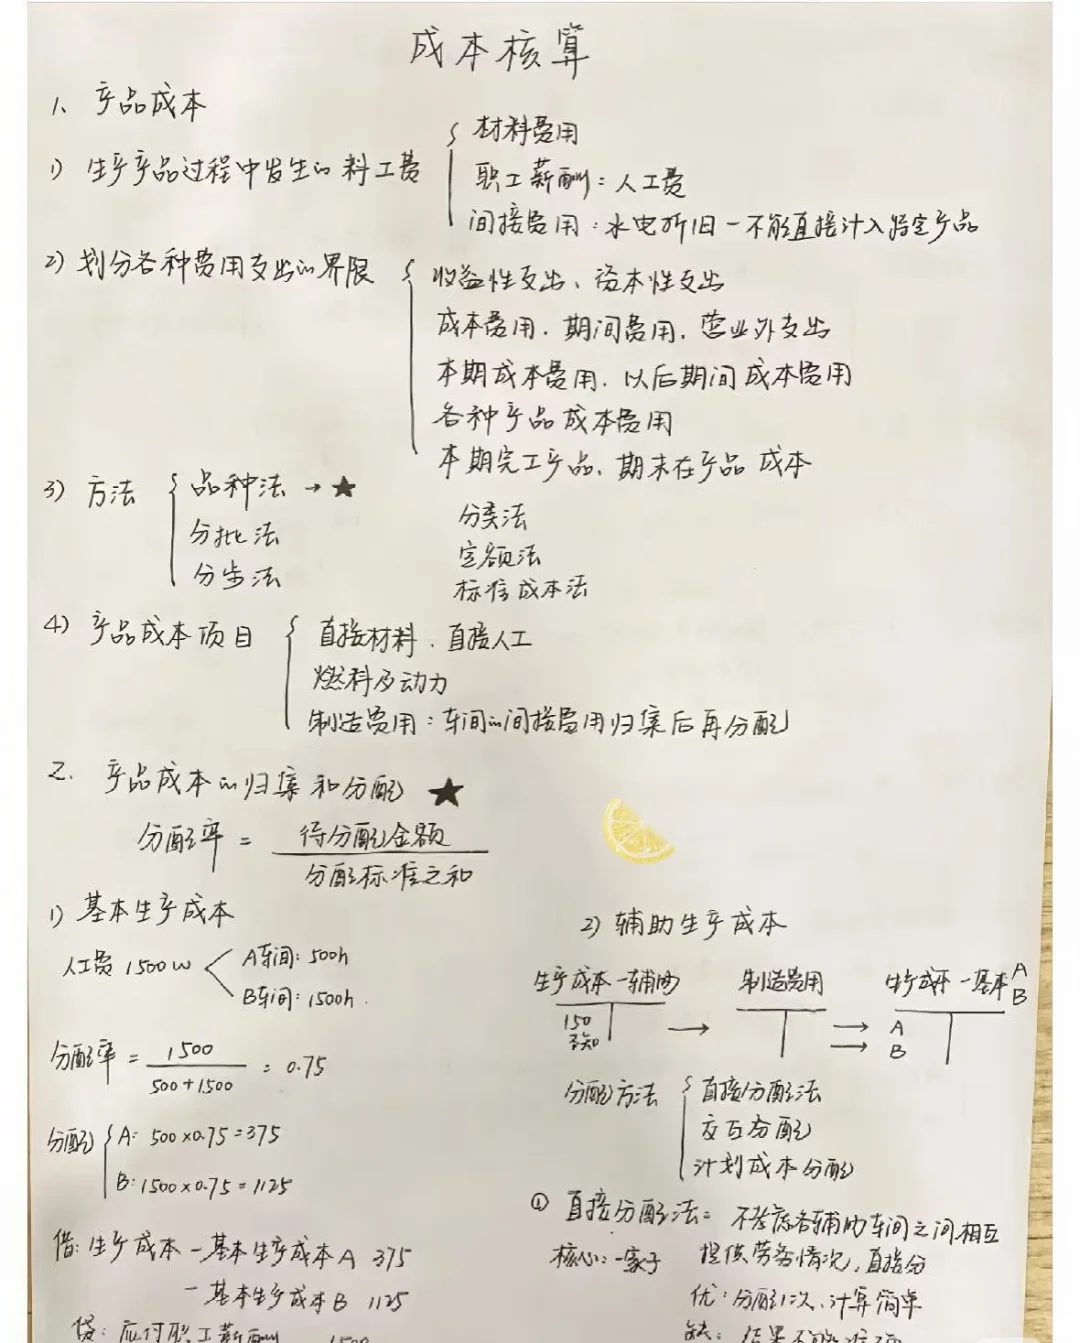 成本核算
1、产品成本
1) 生产产品过程中发生的料工费
材料费用
职工薪酬：人工费
间接费用：水电折旧－不能直接计入特定产品
2) 划分各种费用支出的界限
收益性支出、资本性支出
成本费用、期间费用、营业外支出
本期成本费用、以后期间成本费用
各种产品成本费用
本期完工产品、期末在产品成本
3) 方法
品种法 → ★
分批法
分步法
分类法
定额法
标准成本法
4) 产品成本项目
直接材料、直接人工
燃料及动力
制造费用：车间的间接费用归集后再分配
2. 产品成本的归集和分配 ★
分配率 = 待分配金额
分配标准之和
1) 基本生产成本
人工费 1500w
A车间: 500h
B车间: 1500h.
分配率 = 1500
500+1500
= 0.75
分配
A: 500×0.75=375
B: 1500×0.75=1125
借: 生产成本－基本生产成本A 375
－基本生产成本B 1125
贷: 应付职工薪酬 1500
2) 辅助生产成本
生产成本－辅助 制造费用 生产成本－基本 A B
150 → → A
→ B
分配方法
直接分配法
交互分配
计划成本分配
① 直接分配法: 不考虑各辅助车间之间相互
核心: 提供劳务情况，直接分
优: 分配1次、计算简单
缺: 结果不够准确